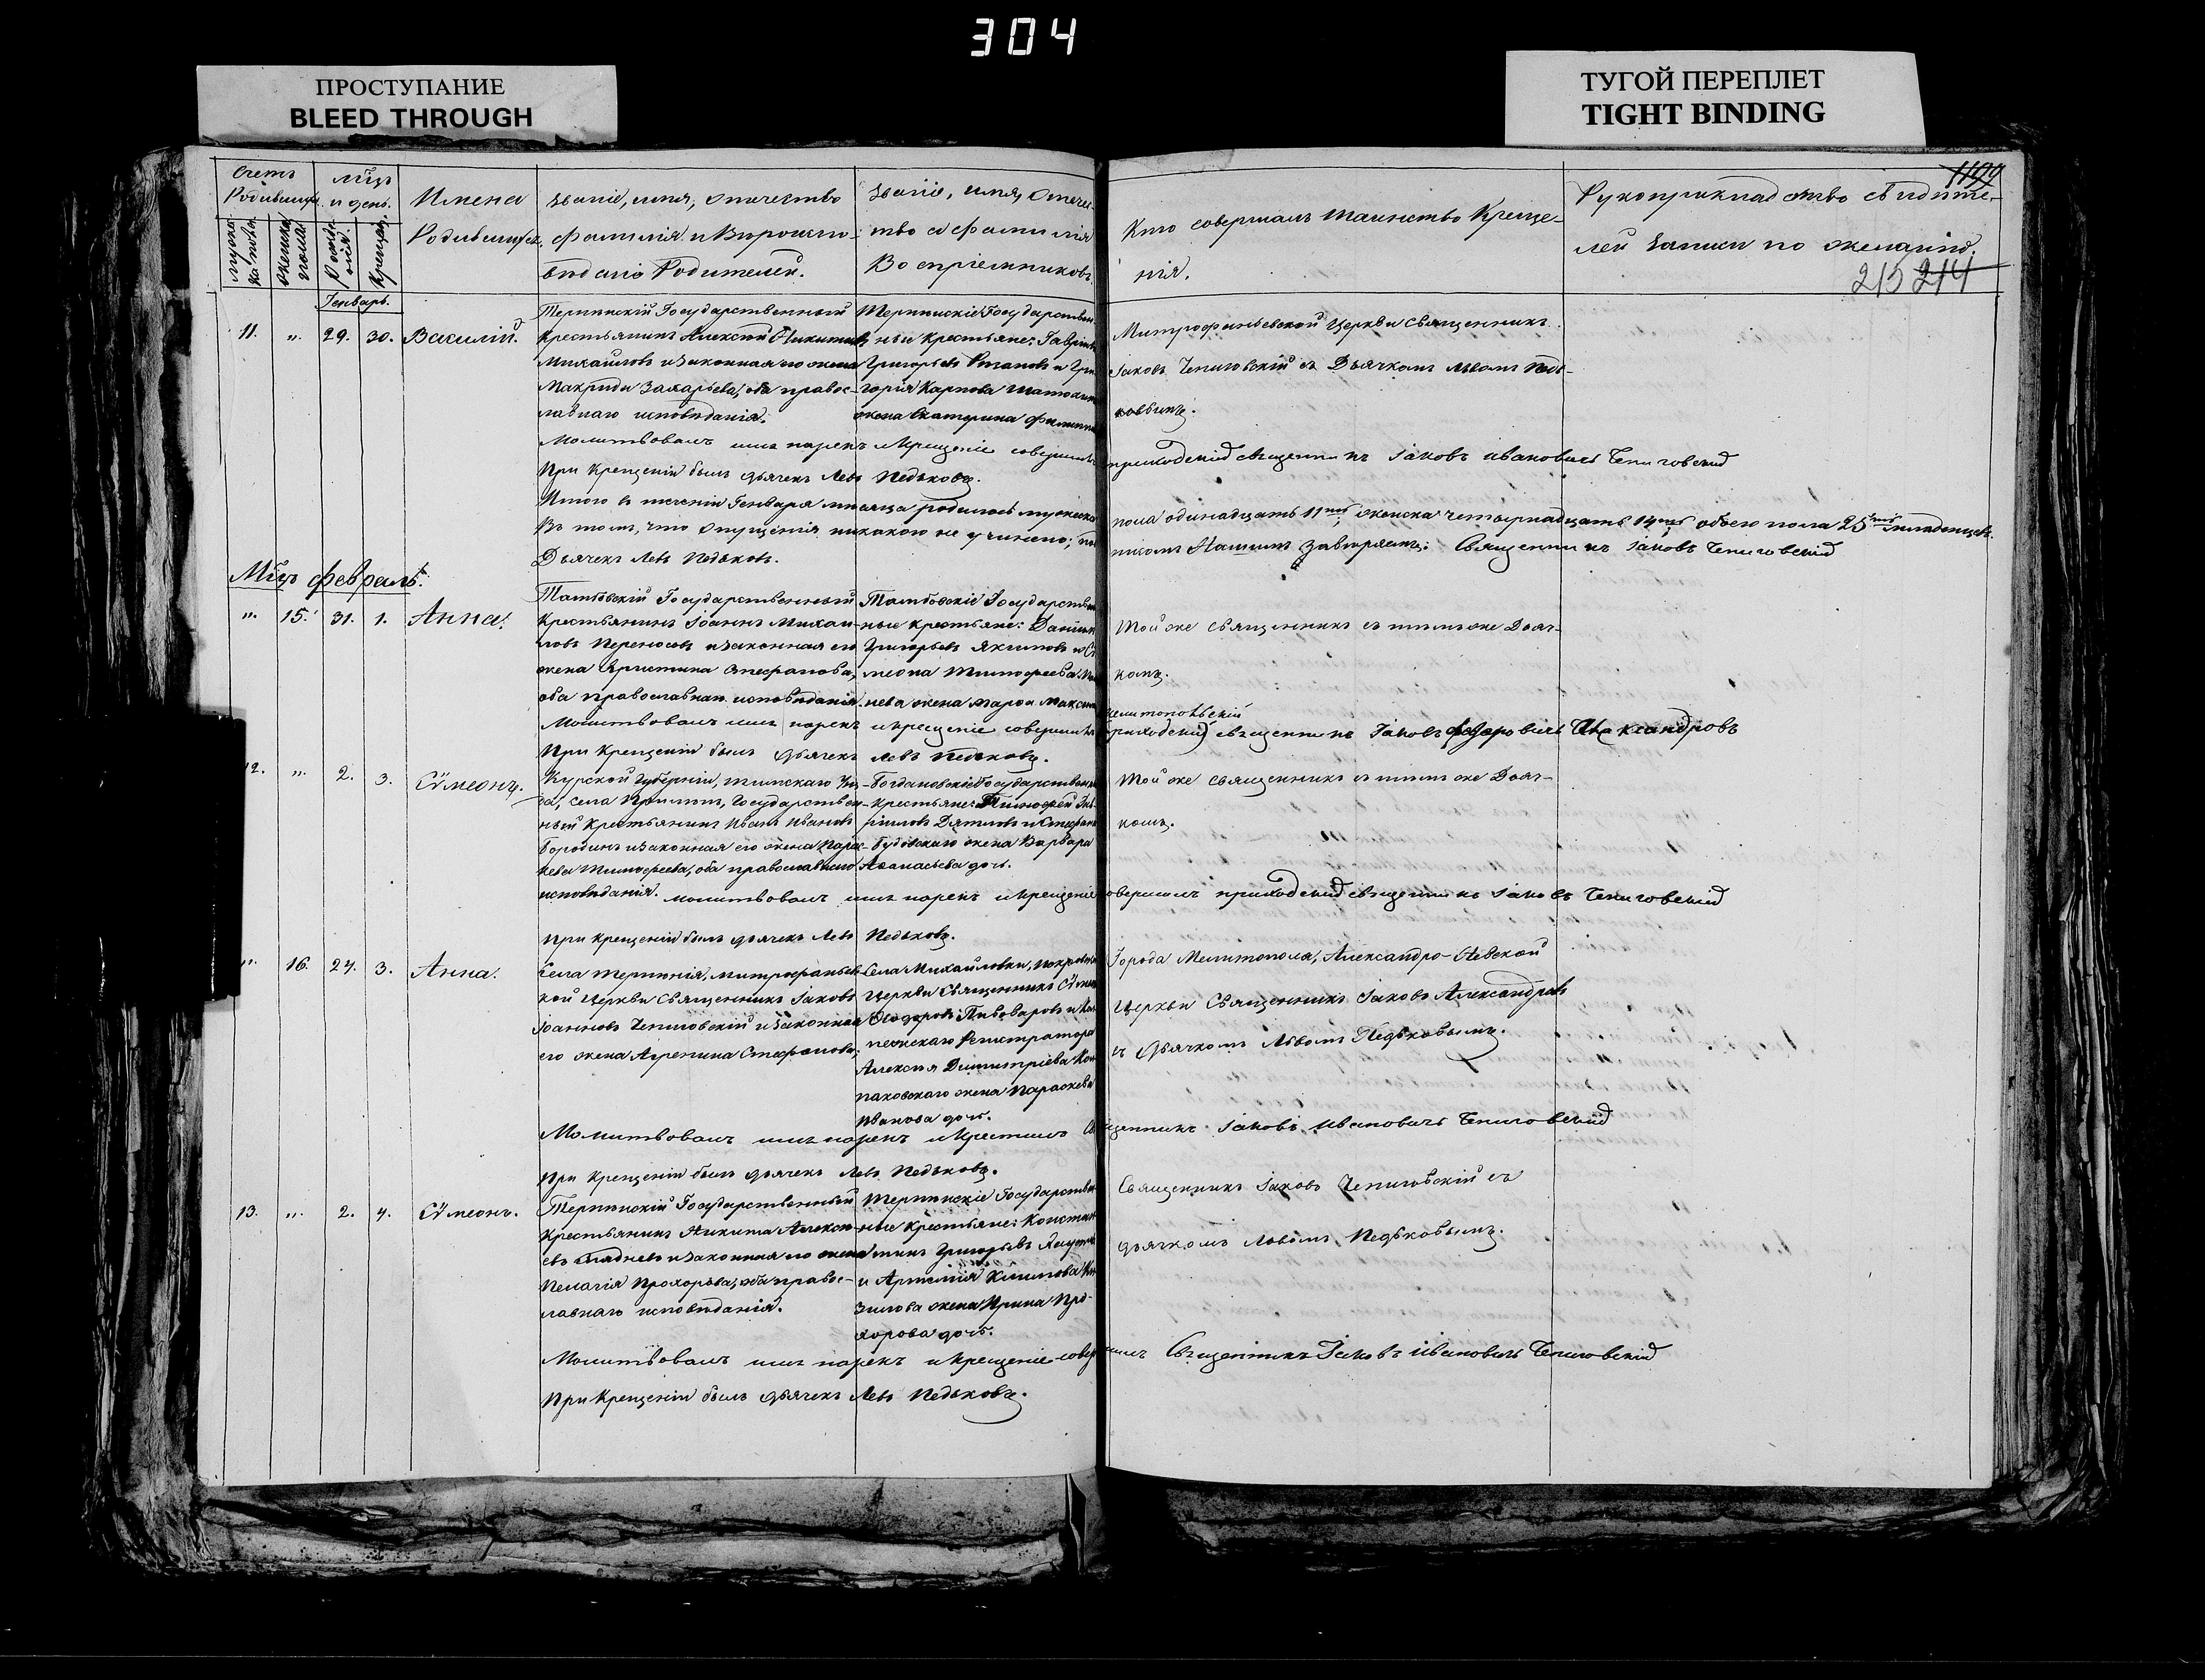 304
ПРОСТУПАНИЕ
BLEED THROUGH
ТУГОЙ ПЕРЕПЛЕТ
TIGHT BINDING
1199
Счетъ Родившихся
мужеска пола
женска пола
Мѣцъ и день
Рожденія
Крещенія
Имена Родившихся
Званіе, имя, отчество
фамилія и Вѣроиспо-
вѣданіе Родителей.
Званіе, имя, отече-
тво и фамилія
Воспріемниковъ
Кто совершалъ таинство Креще-
нія.
Рукоприкладство свидѣте-
лей записи по желанію.
215 214
Генварь.
11. „ 29. 30. Василій.
Терпинскій Государственный
Крестьянинъ Алексѣй Никитинъ
Михайловъ и законная его жена
Макрида Захарьева, оба право-
лавнаго исповѣданія.
Терпинскіе Государствен
ные Крестьяне: Гавріилъ
Григорьевъ и Гри
горія Карпова
жена Екатерина
Митрофаньевской Церкви Священникъ
Іаковъ Чепиговскій съ Дьячкомъ Львомъ Педь-
ковымъ.
Молитвовалъ имя нарекъ и Крещеніе совершилъ приходскій священникъ Іаковъ Ивановичъ Чепиговскій
При Крещеніи былъ дьячекъ Левъ Педьковъ.
Итого в теченіи Генваря мѣсяца родилось мужеска пола одинадцать 11ть женска четырнадцать 14ть обоего пола 25ть младенцевъ.
Въ томъ, что опущенія никакого не учинено; нашимъ завѣряемъ: Священникъ Іаковъ Чепиговскій
Дьячекъ Левъ Педьковъ.
Мѣцъ февраль.
„ 15. 31. 1. Анна.
Тамбовскій Государственный
Крестьянинъ Іоаннъ Михай-
ловъ Переносовъ и законная его
жена Христина Стефанова,
оба православнаго исповѣданія.
Тамбовскіе Государствен
ные крестьяне: Даніилъ
Григорьевъ Якимовъ и
Тимофеева
жена Марѳа Макси
Той же священникъ съ тѣмъ же Дьяч-
комъ.
Молитвовалъ имя нарекъ и крещеніе совершилъ Мелитопольскій
приходскій священникъ Іаковъ Федоровичъ Александровъ
При Крещеніи былъ дьячекъ Левъ Педьковъ.
12. „ 2. 3. Сѵмеонъ.
Курской Губерніи, Тимскаго Уѣз-
да, села Государствен-
ный Крестьянинъ Иванъ Ивановъ
Бородинъ и законная его жена Парас-
кева Тимофеева, оба православнаго
исповѣданія.
Богдановскіе Государствен
крестьяне: Тимофей
Дятловъ и Стефана
жена Варвара
Аѳанасьева дочь.
Той же священникъ съ тѣмъ же Дьяч-
комъ.
молитвовалъ имя нарекъ и крещеніе совершилъ приходскій священникъ Іаковъ Чепиговскій
При крещеніи былъ дьячекъ Левъ Педьковъ.
„ 16. 24. 3. Анна.
Села Терпѣнія, Митрофаньевс-
кой Церкви Священникъ Іаковъ
Іоанновъ Чепиговскій и законная
его жена Агрепина Стефанова,
Села Михайловки, Покровской
Церкви Священникъ Сѵмеонъ
Ѳеодоровъ Пивоваровъ и Кол
лежскаго Регистратора
Алексѣя Димитріева
жена Параскева
Иванова дочь.
Города Мелитополя, Александро-Невской
Церкви Священникъ Іаковъ Александровъ
съ Дьячкомъ Львомъ Педьковымъ.
Молитвовалъ имя нарекъ и Крестилъ Священникъ Іаковъ Ивановичъ Чепиговскій
При Крещеніи былъ дьячекъ Левъ Педьковъ.
13. „ 2. 4. Сѵмеонъ.
Терпинскій Государственный
Крестьянинъ Никита Алексѣ-
евъ и законная его жена
Пелагія Прохорова, оба право-
лавнаго исповѣданія.
Терпинскіе Государствен
ные Крестьяне: Констан
тинъ Григорьевъ
и Артемія Климова
жена Ирина Про-
хорова дочь.
Священникъ Іаковъ Чепиговскій съ
дьячкомъ Львомъ Педьковымъ.
Молитвовалъ имя нарекъ и крещеніе совершилъ Священникъ Іаковъ Ивановичъ Чепиговскій
При Крещеніи былъ дьячекъ Левъ Педьковъ.